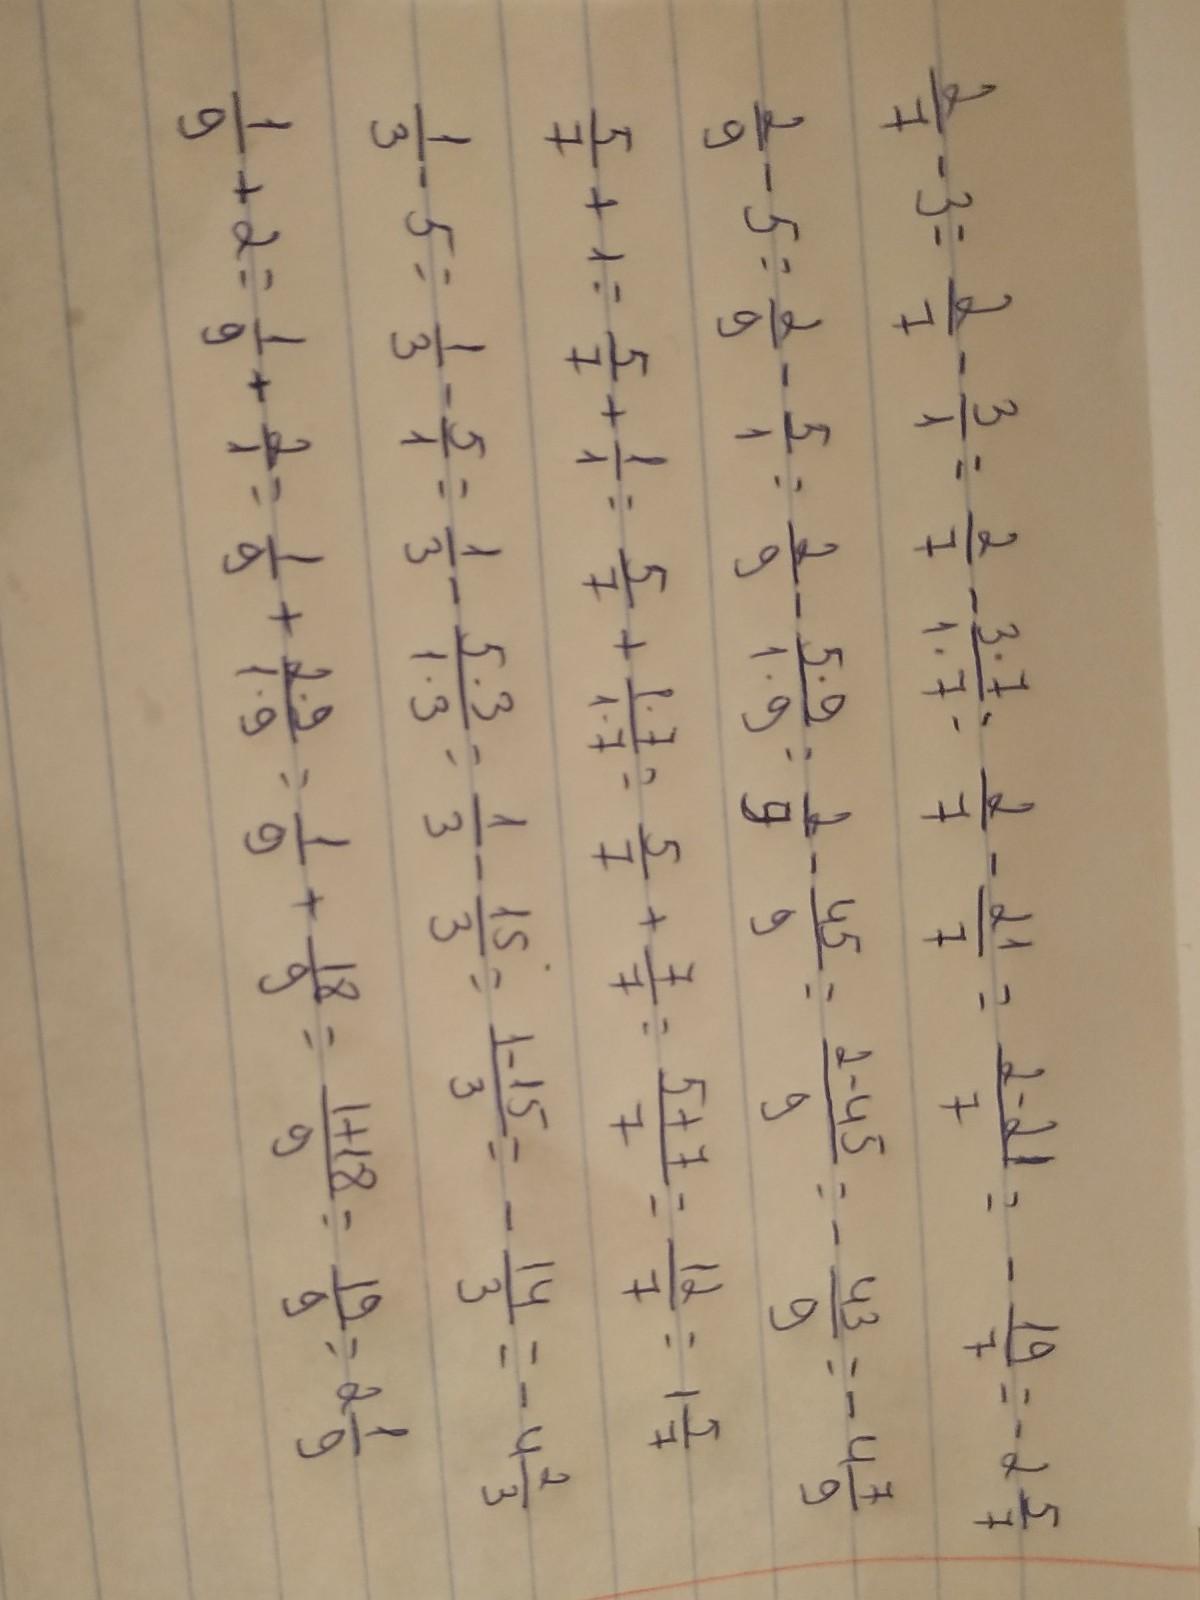 2/7 - 3 = 2/7 - 3/1 = 2/7 - 3·7/1·7 = 2/7 - 21/7 = 2-21/7 = - 19/7 = - 2 5/7
2/9 - 5 = 2/9 - 5/1 = 2/9 - 5·9/1·9 = 2/9 - 45/9 = 2-45/9 = - 43/9 = - 4 7/9
5/7 + 1 = 5/7 + 1/1 = 5/7 + 1·7/1·7 = 5/7 + 7/7 = 5+7/7 = 12/7 = 1 5/7
1/3 - 5 = 1/3 - 5/1 = 1/3 - 5·3/1·3 = 1/3 - 15/3 = 1-15/3 = - 14/3 = - 4 2/3
1/9 + 2 = 1/9 + 2/1 = 1/9 + 2·9/1·9 = 1/9 + 18/9 = 1+18/9 = 19/9 = 2 1/9